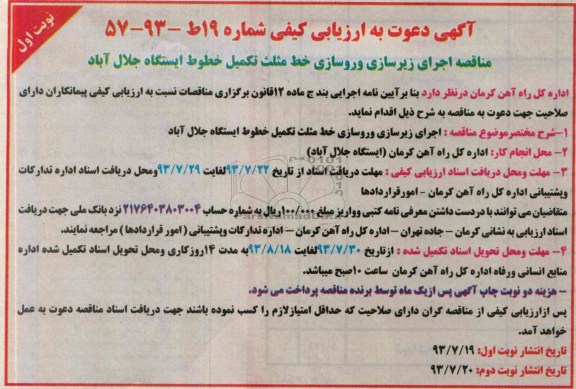 نوبت اول
آگهی دعوت به ارزیابی کیفی شماره ۱۹ط -۹۳-۵۷
مناقصه اجرای زیرسازی وروسازی خط مثلث تکمیل خطوط ایستگاه جلال آباد
اداره کل راه آهن کرمان درنظر دارد بنا برآیین نامه اجرایی بند ج ماده ۱۲قانون برگزاری مناقصات نسبت به ارزیابی کیفی پیمانکاران دارای
صلاحیت جهت دعوت به مناقصه به شرح ذیل اقدام نماید.
۱-شرح مختصرموضوع مناقصه : اجرای زیرسازی وروسازی خط مثلث تکمیل خطوط ایستگاه جلال آباد
۲- محل انجام کار: اداره کل راه آهن کرمان (ایستگاه جلال آباد)
۳- مهلت ومحل دریافت اسناد ارزیابی کیفی : مهلت دریافت اسناد از تاریخ ۹۳/۷/۲۲لغایت ۹۳/۷/۲۹ومحل دریافت اسناد اداره تدارکات
وپشتیبانی اداره کل راه آهن کرمان - امورقراردادها
متقاضیان می توانند با دردست داشتن معرفی نامه کتبی وواریز مبلغ ۱۰۰/۰۰۰ریال به شماره حساب ۲۱۷۶۴۰۳۸۰۳۰۰۴ نزد بانک ملی جهت دریافت
اسناد ارزیابی به نشانی کرمان - جاده تهران - اداره کل راه آهن کرمان - اداره تدارکات وپشتیبانی ( امور قراردادها ) مراجعه نمایند.
۴- مهلت ومحل تحویل اسناد تکمیل شده : ازتاریخ ۹۳/۷/۳۰لغایت ۹۳/۸/۱۸به مدت ۱۴روزکاری ومحل تحویل اسناد تکمیل شده اداره
منابع انسانی ورفاه اداره کل راه آهن کرمان ساعت ۱۰صبح میباشد.
- هزینه دو نوبت چاپ آگهی پس ازیک ماه توسط برنده مناقصه پرداخت می شود.
پس ازارزیابی کیفی از مناقصه گران دارای صلاحیت که حداقل امتیازلازم را کسب نموده باشند جهت دریافت اسناد مناقصه دعوت به عمل
خواهد آمد.
تاریخ انتشار نوبت اول: ۹۳/۷/۱۹
تاریخ انتشار نوبت دوم: ۹۳/۷/۲۰